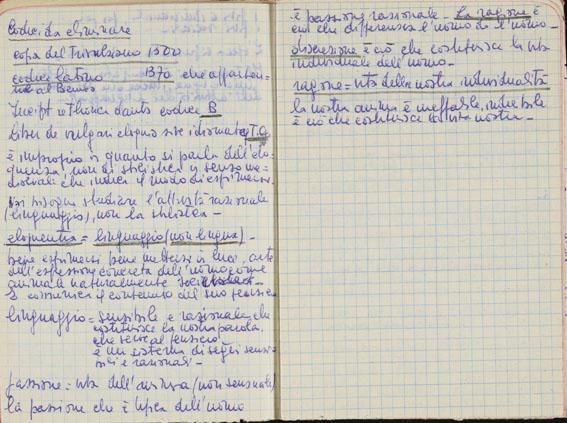 Codici da eliminare
copia del Trivulziano 1500
codice latino 1370 che apparten=
ne al Bembo
Incipit rethorica dantis codice B
Liber de vulgari eloquio sive idiomate T.G.
è improprio in quanto si parla dell'elo=
quenza, non di stilistica in senso me=
dioevale che indica il modo di esprimersi.
bisogna studiare l'attività razionale
(linguaggio), non la stilistica -
eloquentia = linguaggio (non lingua) -
bene esprimersi bene mettersi in luce, arte
dell'espressione concreta dell'uomo come
animale naturalmente socievole -
Si comunica il contenuto del suo pensiero
linguaggio = sensibile e razionale, che
costituisce la nostra parola,
che serve al pensiero -
è un sistema di segni sensi=
bili e razionali -
passione = vita dell'anima (non sensuale)
la passione che è tipica dell'uomo
è passione razionale - La ragione è
ciò che differenzia l'uomo da l'uomo -
discrezione è ciò che costituisce la vita
individuale dell'uomo -
ragione = vita della nostra individualità
la nostra anima è ineffabile, indicibile
è ciò che costituisce la vita nostra -